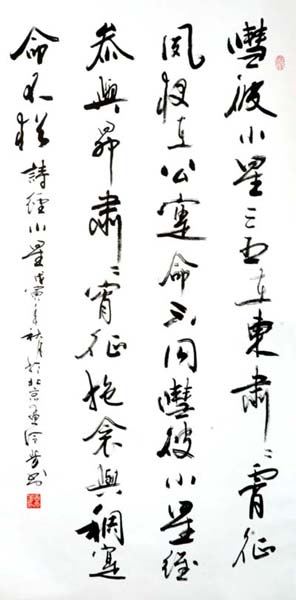 嘒彼小星三五在東肅〻宵征
夙夜在公寔命不同嘒彼小星維
參與昴肅〻宵征抱衾與裯寔
命不猶 詩經小星 戊寅年秋月於北京